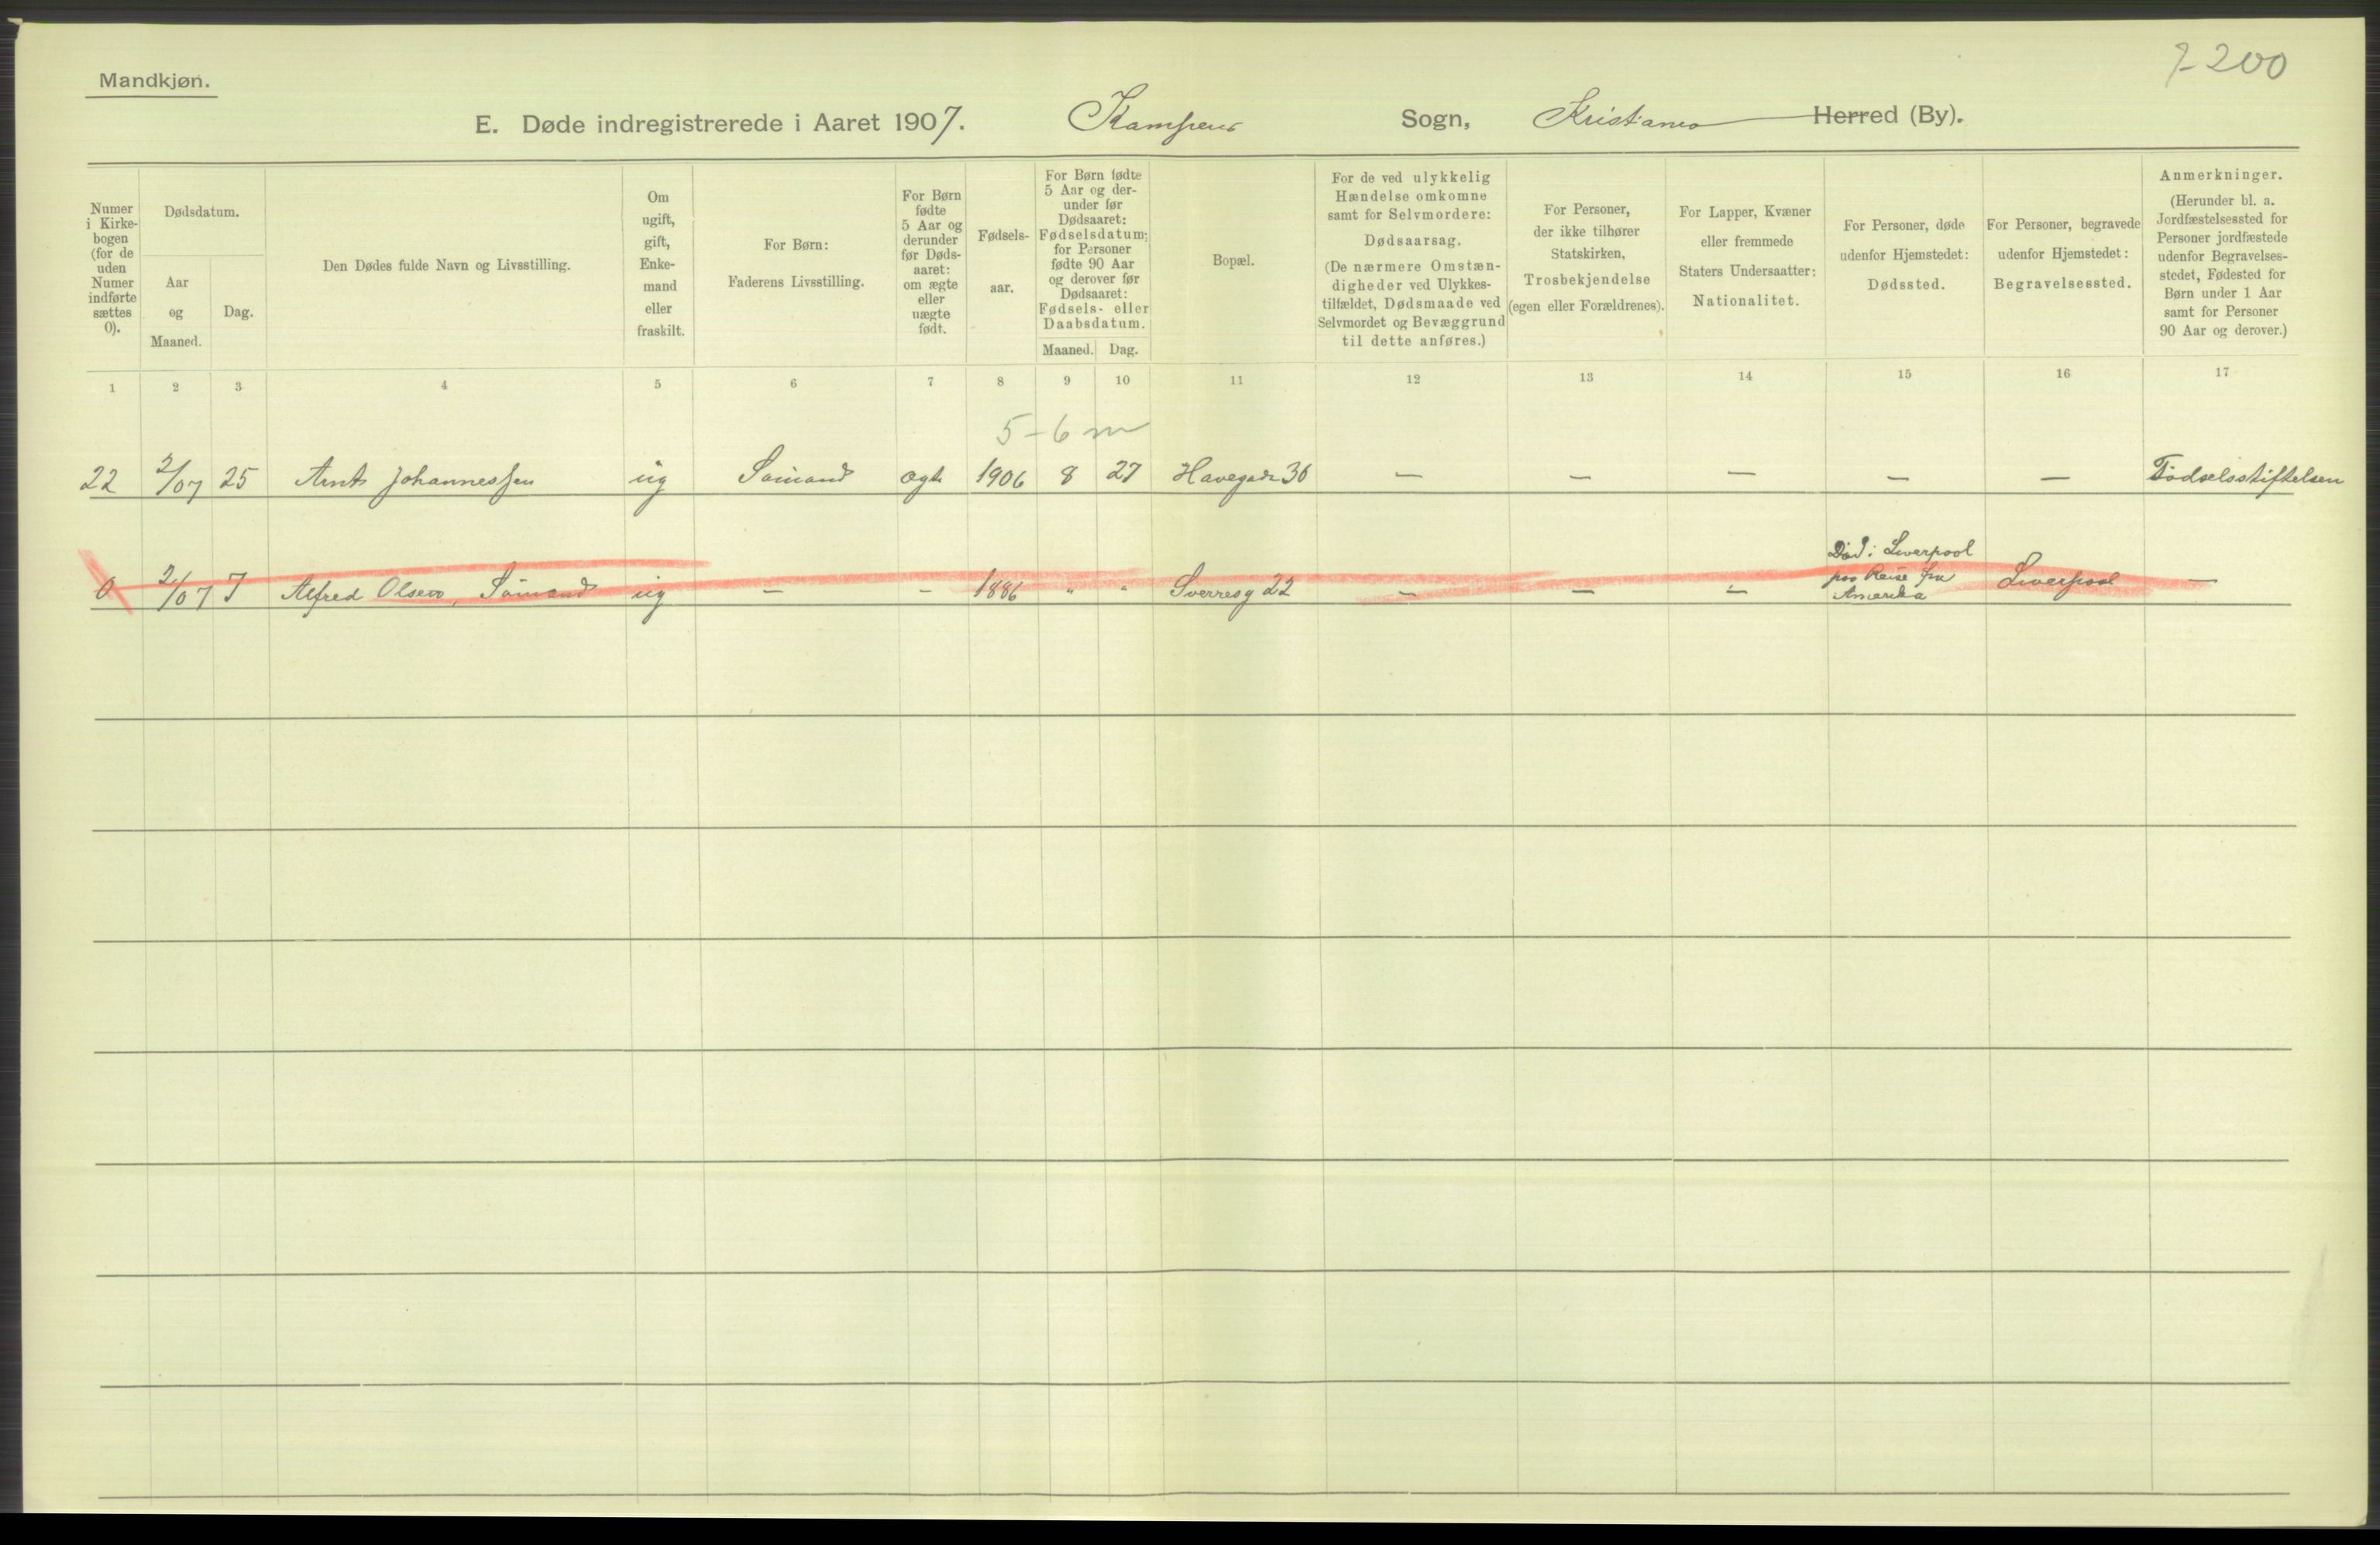 7-200
Mandkjøn.
E. Døde indregistrerede i Aaret 1907. Kampens Sogn, Kristiania Herred (By).
Numer
i Kirke-
bogen
(for de
uden
Numer
indførte
sættes
0).
Dødsdatum.
Aar
og
Maaned.
Dag.
Den Dødes fulde Navn og Livsstilling.
Om
ugift,
gift,
Enke-
mand
eller
fraskilt.
For Børn:
Faderens Livsstilling.
For Børn
fødte
5 Aar og
derunder
før Døds-
aaret:
om ægte
eller
uægte
født.
Fødsels-
aar.
For Børn fødte
5 Aar og der-
under før
Dødsaaret:
Fødselsdatum;
for Personer
fødte 90 Aar
og derover før
Dødsaaret:
Fødsels- eller
Daabsdatum.
Maaned. Dag.
Bopæl.
For de ved ulykkelig
Hændelse omkomne
samt for Selvmordere:
Dødsaarsag.
(De nærmere Omstæn-
digheder ved Ulykkes-
tilfældet, Dødsmaade ved
Selvmordet og Bevæggrund
til dette anføres.)
For Personer,
der ikke tilhører
Statskirken,
Trosbekjendelse
(egen eller Forældrenes).
For Lapper, Kvæner
eller fremmede
Staters Undersaatter:
Nationalitet.
For Personer, døde
udenfor Hjemstedet:
Dødssted.
For Personer, begravede
udenfor Hjemstedet:
Begravelsessted.
Anmerkninger.
(Herunder bl. a.
Jordfæstelsessted for
Personer jordfæstede
udenfor Begravelses-
stedet, Fødested for
Børn under 1 Aar
samt for Personer
90 Aar og derover.)
1 2 3 4 5 6 7 8 9 10 11 12 13 14 15 16 17
5-6 m
22 2/07 25 Arnt Johannessen ug Sømand ægte 1906 8 27 Havegade 36 — — — — — Fødselsstiftelsen
0 2/07 7 Alfred Olsen, Sømand ug — — 1886 " " Sverresg 22 — — — Død i Liverpool
paa Reise fra
Amerika
Liverpool —